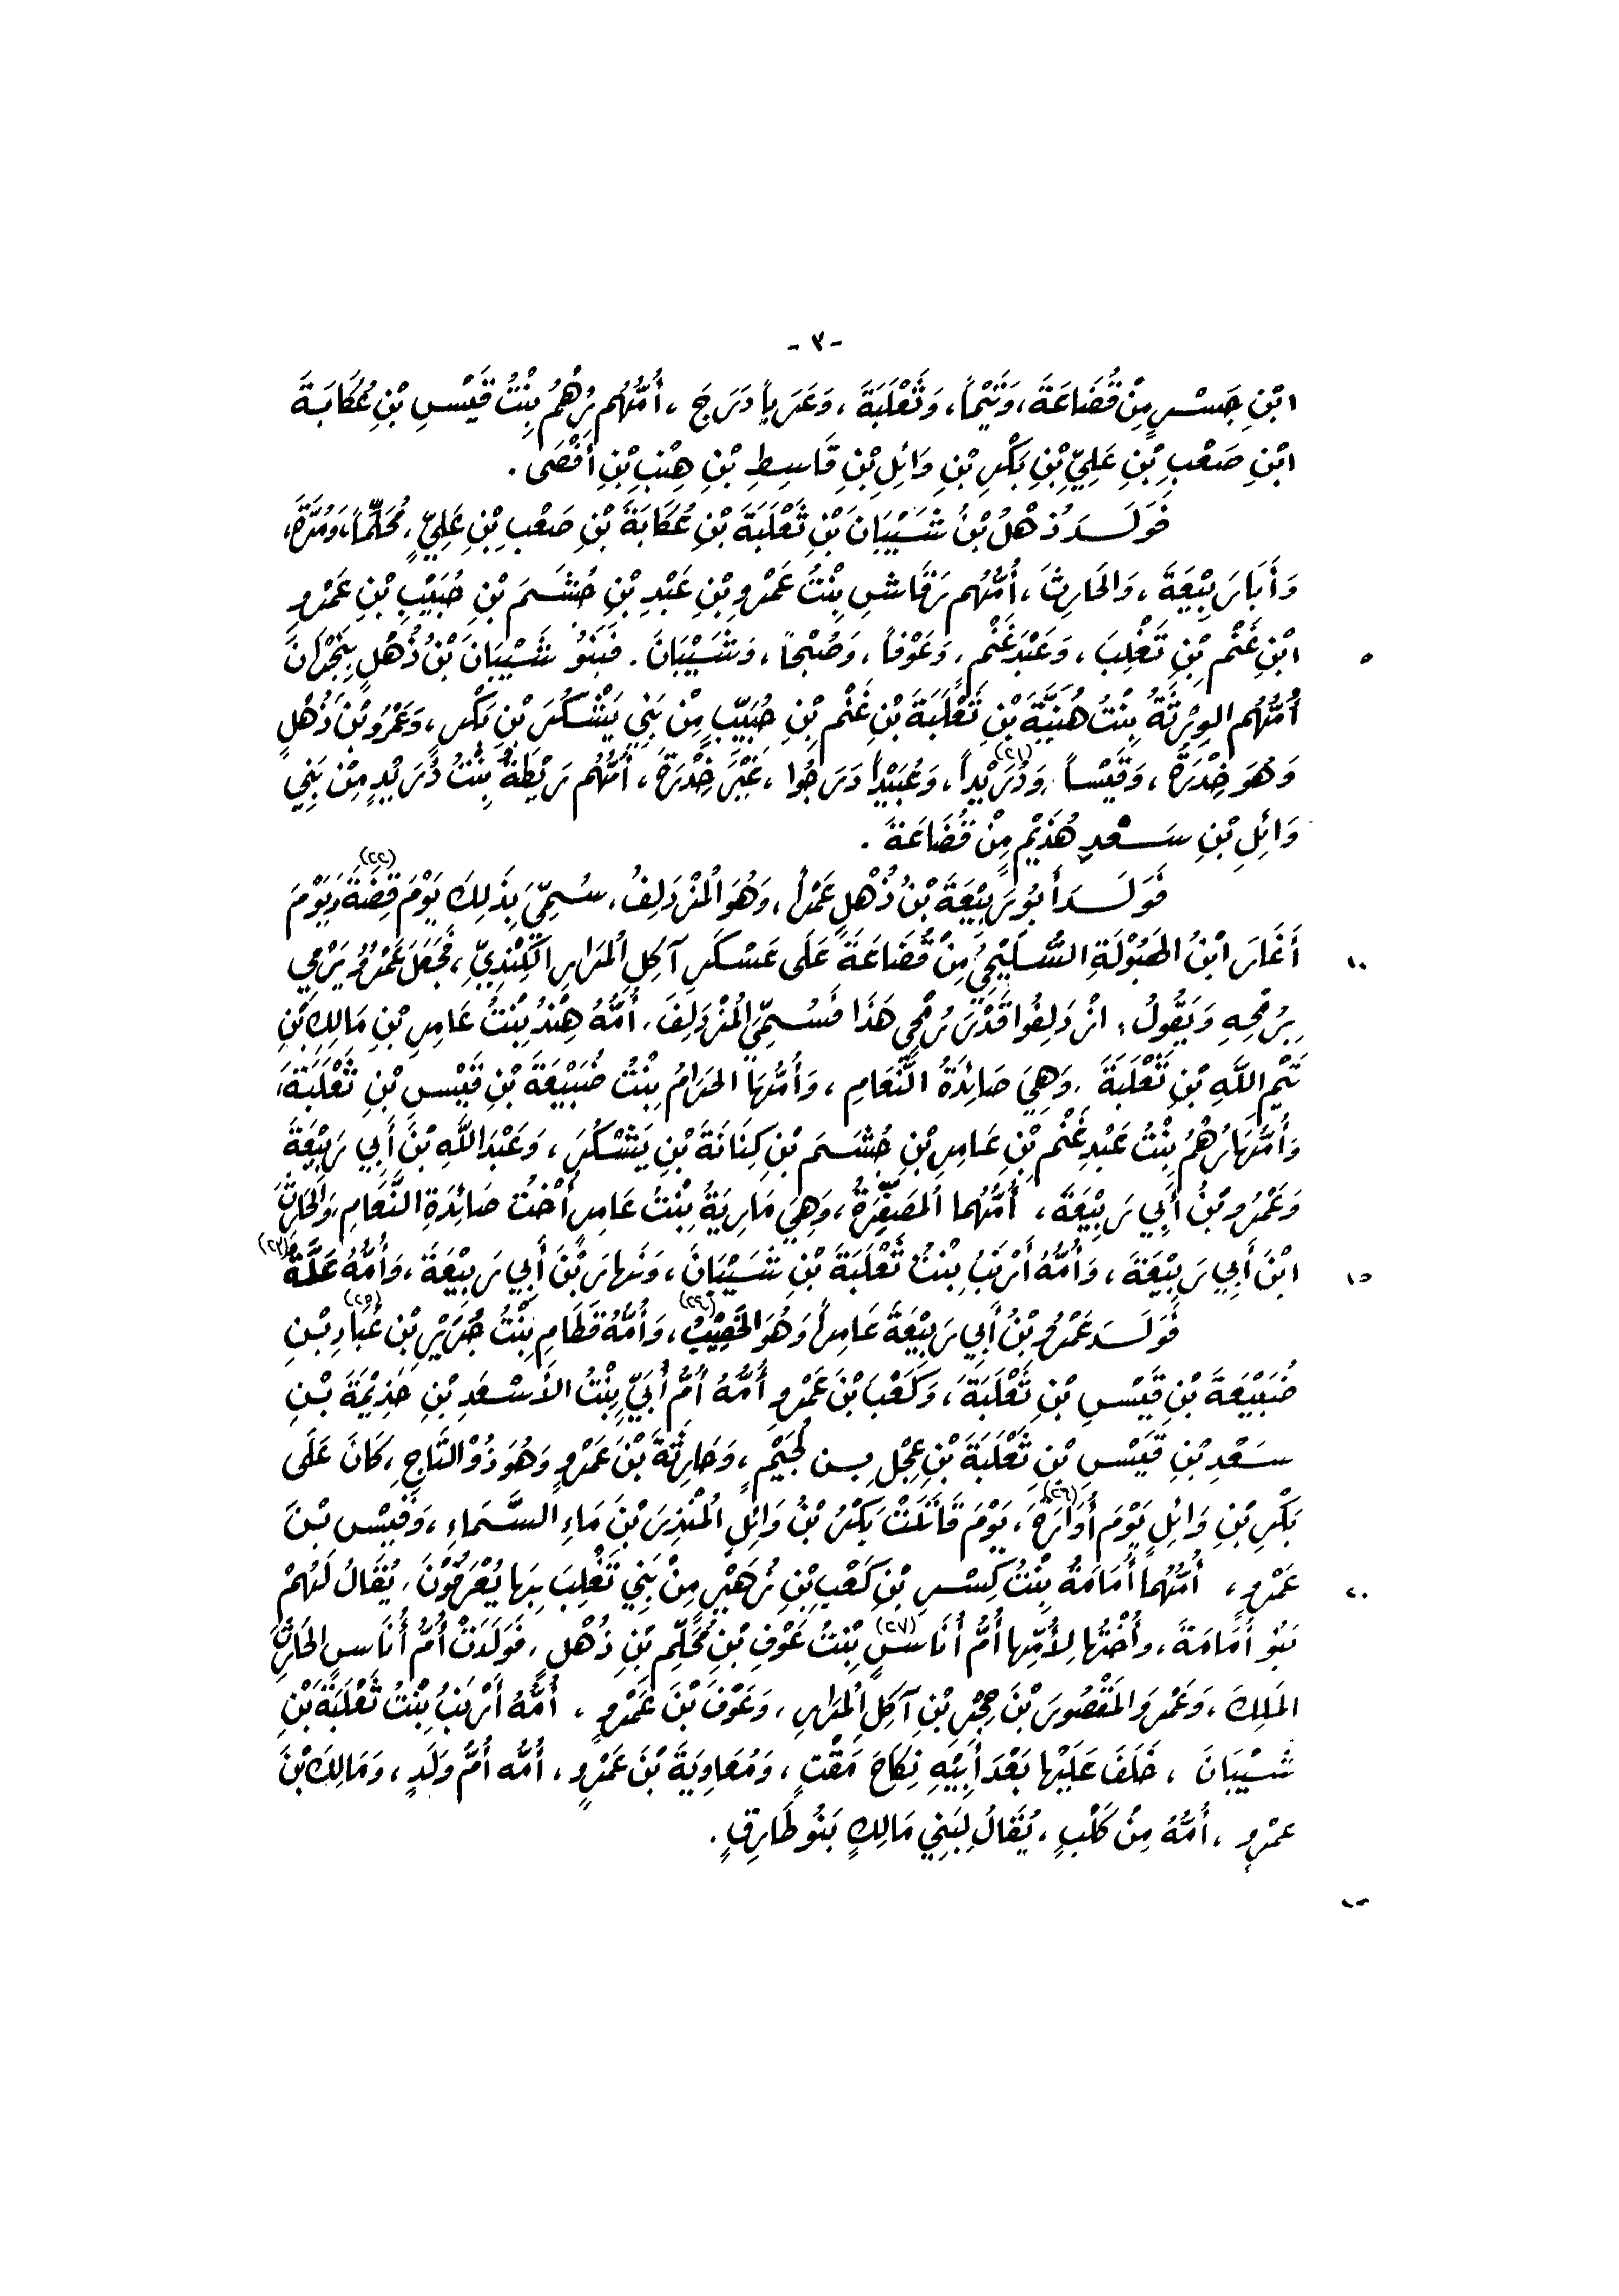 - ٣ -
ابْنِ جَسْرٍ مِنْ قُضَاعَةَ، وَتَيْماً، وَثَعْلَبَةَ، وَعَدِياً دَرَجَ، أُمُّهُم رُهْمُ بِنْتُ قَيْسِ بْنِ عُكَابَةَ
ابْنِ صَعْبِ بْنِ عَلِيِّ بْنِ بَكْرِ بْنِ وَائِلِ بْنِ قَاسِطِ بْنِ هِنْبِ بْنِ أَفْصَى.
فَوَلَدَ ذُهْلُ بْنُ شَيْبَانَ بْنِ ثَعْلَبَةَ بْنِ عُكَابَةَ بْنِ صَعْبِ بْنِ عَلِيٍّ، مُحَلِّماً، وَمُرَّةَ،
وَأَبَا رَبِيْعَةَ، وَالحَارِثَ، أُمُّهُم رَقَاشِ بِنْتُ عَمْرِو بْنِ عَبْدِ بْنِ جُشَمَ بْنِ حُبَيْبِ بْنِ عَمْرِو
٥ ابْنِ غَنْمِ بْنِ تَغْلِبَ، وَعَبْدَ غَنْمٍ، وَعَوْفاً، وَصُبْحاً، وَشَيْبَانَ. فَبَنُو شَيْبَانَ بْنُ ذُهْلٍ بِنَجْرَانَ
أُمُّهُم الوِرْثَةُ بِنْتُ هُنَيَّةَ بْنِ ثَعْلَبَةَ بْنِ غَنْمِ بْنِ حُبَيِّبٍ مِنْ بَنِي يَشْكُرَ بْنِ بَكْرٍ، وَعَمْرُو بْنَ ذُهْلٍ
وَهُوَ خِدْرَةُ، وَقَيْساً، وَدُرَيْداً(٢١)، وَعُبَيْداً دَرَجُوا، غَيْرَ خِدْرَةَ، أُمُّهُم رَيْطَةُ بِنْتُ دُرَيْدٍ مِنْ بَنِي
وَائِلِ بْنِ سَعْدِ هُذَيْمٍ مِنْ قُضَاعَةَ.
فَوَلَدَ أَبُو رَبِيْعَةَ بْنُ ذُهْلٍ عَمْراً، وَهُوَ المُزْدَلِفُ، سُمِّيَ بِذَلِكَ يَوْمَ قِضَةَ(٢٢)، وَيَوْمَ
١٠ أَغَارَ ابْنُ الهَبُوْلَةِ السَّلِيْحِيُّ مِنْ قُضَاعَةَ عَلَى عَسْكَرِ آكِلِ المُرَارِ الكِنْدِيِّ، فَجَعَلَ عَمْرٌو يَرْمِي
بِرُمْحِهِ وَيَقُولُ: ازْدَلِفُوا قَدْرَ رُمْحِي هَذَا فَسُمِّيَ المُزْدَلِفَ، أُمُّهُ هِنْدُ بِنْتُ عَامِرِ بْنِ مَالِكِ بْنِ
تَيْمِ اللَّهِ بْنِ ثَعْلَبَةَ، وَهِيَ صَائِدَةُ النَّعَامِ، وَأُمُّهَا الحَرَامُ بِنْتُ ضُبَيْعَةَ بْنِ قَيْسِ بْنِ ثَعْلَبَةَ،
وَأُمُّهَا رُهْمُ بِنْتُ عَبْدِ غَنْمِ بْنِ عَامِرِ بْنِ جُشَمَ بْنِ كِنَانَةَ بْنِ يَشْكُرَ، وَعَبْدَ اللَّهِ بْنَ أَبِي رَبِيْعَةَ
وَعَمْرُو بْنُ أَبِي رَبِيْعَةَ، أُمُّهُما المُصَغِّرَةُ، وَهِيَ مَارِيَةُ بِنْتُ عَامِرٍ أُخْتُ صَائِدَةِ النَّعَامِ، وَالحَارِثَ
١٥ ابْنَ أَبِي رَبِيْعَةَ، وَأُمُّهُ أَرْنَبُ بِنْتُ ثَعْلَبَةَ بْنِ شَيْبَانَ، وَنَهارَ بْنَ أَبِي رَبِيْعَةَ، وَأُمُّهُ عَلَّةُ(٢٣)
فَوَلَدَ عَمْرُو بْنُ أَبِي رَبِيْعَةَ عَامِراً وَهُوَ الخَصِيْبُ(٢٤)، وَأُمُّهُ قَطَامِ بِنْتُ جُرَيْرِ(٢٥) بْنِ عُبَادِ بْنِ
ضُبَيْعَةَ بْنِ قَيْسِ بْنِ ثَعْلَبَةَ، وَكَعْبَ بْنَ عَمْرٍو أُمُّهُ أُمُّ أُبَيٍّ بِنْتُ الأَسْعَدِ بْنِ جَذِيْمَةَ بْنِ
سَعْدِ بْنِ قَيْسِ بْنِ ثَعْلَبَةَ بْنِ عِجْلِ بنِ لُجَيْمٍ، وَحَارِثَةَ بْنَ عَمْرٍو وَهُوَ ذُوْ التَّاجِ، كَانَ عَلَى
بَكْرِ بْنِ وَائِلٍ يَوْمَ أُوَارَةَ(٢٦)، يَوْمَ قَاتَلَتْ بَكْرُ بْنُ وَائِلٍ المُنْذِرَ بْنَ مَاءِ السَّمَاءِ، وَقَيْسَ بْنَ
٢٠ عَمْرٍو، أُمُّهُما أُمَامَةُ بِنْتُ كِسْرِ بْنِ كَعْبِ بْنِ زُهَيْرٍ مِنْ بَنِي تَغْلِبَ بِها يُعْرَفُوْنَ، يُقَالُ لَهُمْ
بَنُو أُمَامَةَ، وأُخْتُها لِأُمِّها أُمُّ أُنَاسٍ(٢٧) بِنْتُ عَوْفِ بْنِ مُحَلِّمِ بْنِ ذُهْلٍ، فَوَلَدَتْ أُمُّ أُنَاسٍ الحَارِثَ
المَلِكَ، وَعَمْرَو المَقْصُورَ بْنَ حُجْرِ بْنِ آكِلِ المُرَارِ، وَعَوْفَ بْنَ عَمْرٍو، أُمُّهُ أَرْنَبُ بِنْتُ ثَعْلَبَةَ بْنِ
شَيْبَانَ، خَلَفَ عَلَيْها بَعْدَ أَبِيْهِ نِكَاحَ مَقْتٍ، وَمُعَاوِيَةَ بْنَ عَمْرٍو، أُمُّه أُمُّ وَلَدٍ، وَمَالِكَ بْنَ
عَمْرٍو، أُمُّهُ مِنْ كَلْبٍ، يُقَالُ لِبَنِي مَالِكٍ بَنُو طَارِقٍ.